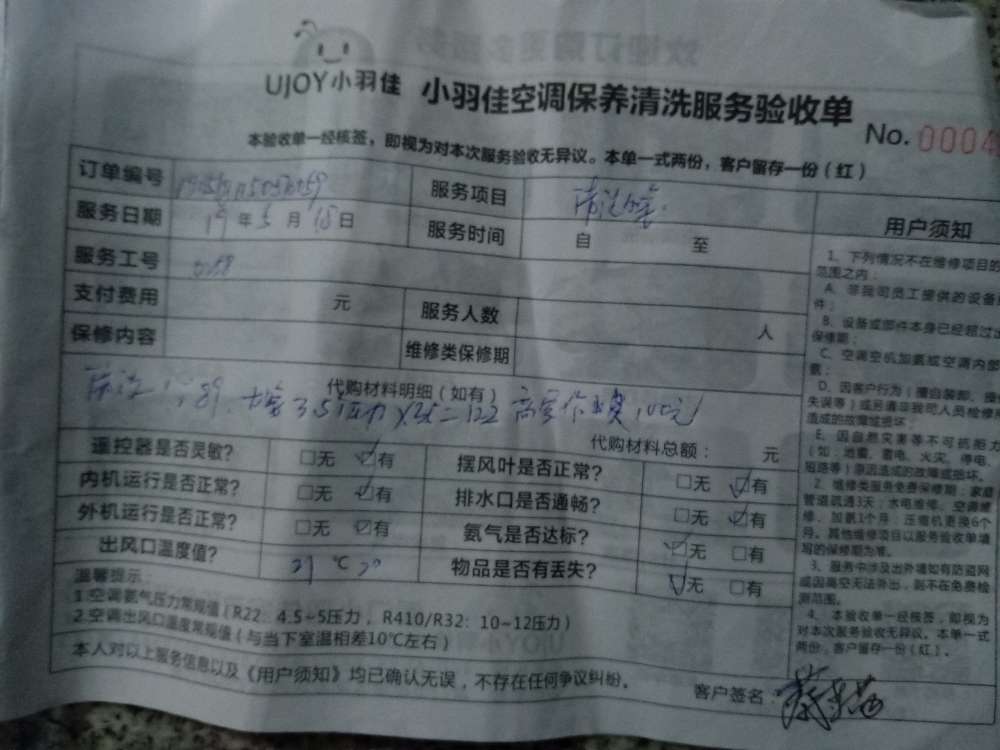 UJOY小羽佳 小羽佳空调保养清洗服务验收单
No. 0004
本验收单一经核签，即视为对本次服务验收无异议。本单一式两份，客户留存一份（红）
订单编号 服务项目
服务日期 19年5月18日 服务时间 自 至
服务工号
支付费用 元 服务人数 人
保修内容 维修类保修期
代购材料明细（如有）
代购材料总额： 元
遥控器是否灵敏? □无 ☑有 摆风叶是否正常? □无 ☑有
内机运行是否正常? □无 ☑有 排水口是否通畅? □无 ☑有
外机运行是否正常? □无 ☑有 氨气是否达标? ☑无 □有
出风口温度值? ℃ 物品是否有丢失? ☑无 □有
温馨提示：
1.空调氨气压力常规值（R22：4.5~5压力，R410/R32：10~12压力）
2.空调出风口温度常规值（与当下室温相差10℃左右）
本人对以上服务信息以及《用户须知》均已确认无误，不存在任何争议纠纷。
客户签名：
用户须知
1、下列情况不在维修项目的
范围之内：
A、非我司员工提供的设备
件；
B、设备或部件本身已经超过
保修期；
C、空调空机加氨或空调内
氨；
D、因客户行为（擅自装卸、
失误等）或另请非我司人员检修
造成的故障或损坏；
E、因自然灾害等不可抗拒
（如：地震、雷电、火灾、停电、
短路等）原因造成的故障或损坏。
2、维修类服务免费保修期：家庭
管道疏通3天；水电维修、空调
修、加氨1个月；压缩机更换6个
月。其他维修项目以服务验收单填
写的保修期为准。
3、服务中涉及出外墙如有防盗网
或因高空无法外出，则不在免费检
测范围。
4、本验收单一经核签，即视为
对本次服务验收无异议。本单一式
两份，客户留存一份（红）。